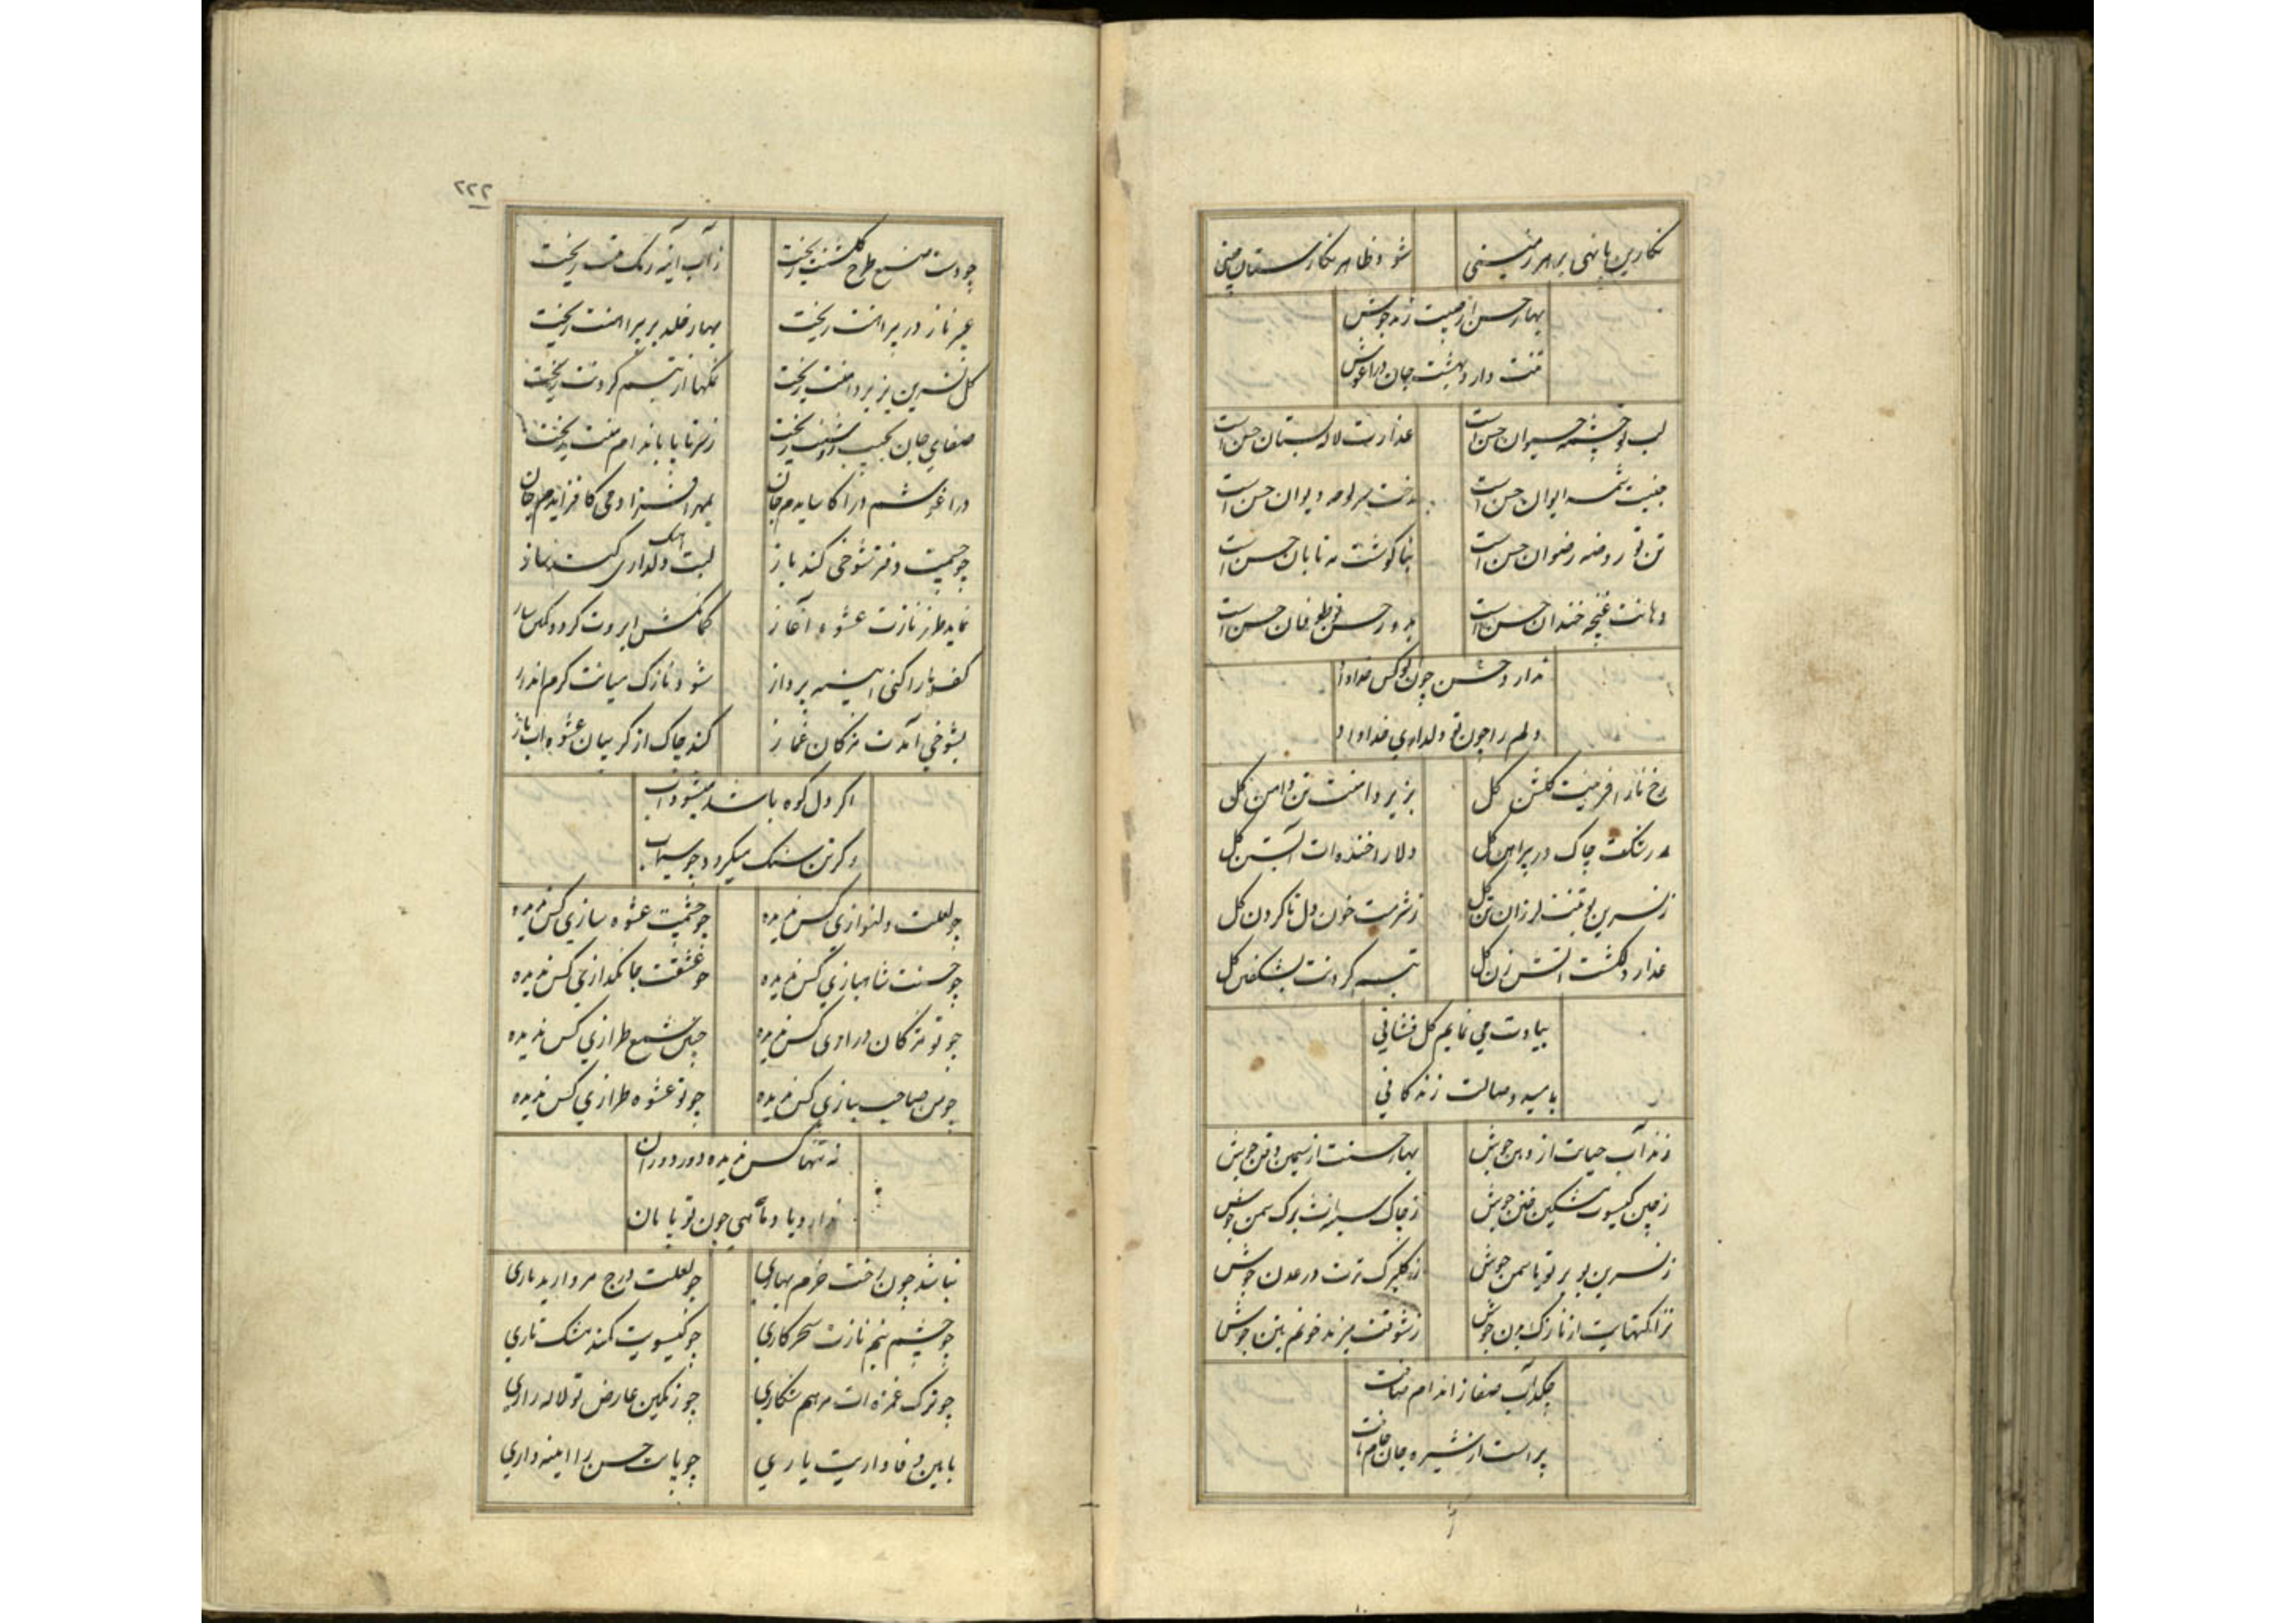 نکارین پا نهی بر هر زمینی شود ظاهر نکارستان چینی
بهار حسن از جیبت زند جوش
تنت دارد بهشت جان در اغوش
لب تو چشمه حیوان حسن است عذارت لاله بستان حسن است
جبینت شمسه ایوان حسن است رخت سرلوحه دیوان حسن است
تن تو روضه رضوان حسن است بناکوشت مه تابان حسن است
دهانت غنچه خندان حسن است بدور حسن تو طوفان حسن است
ندارد حسن چون تو کس خداداد
دلم را چون تو دلداری خدا داد
رخ ناز افرینت کلشن کل بزیر دامنت تن دامن کل
ز رنکت چاک در پیراهن کل دلارا خنده ات ابستن کل
ز نسرین تنت لرزان تن کل ز شرمت خون دل تا کردن کل
عذار دلکشت اتش زن کل تبسم کردنت بشکفتن کل
بیادت می نمایم کل فشانی
بامید وصالت زندکانی
زند آب حیات از دهن جوش بهار حسنت از سیمین ذقن جوش
ز چین کیسوت مشکین ختن جوش ز چاک سینه ات برک سمن جوش
ز نسرین بر تو یاسمن جوش ز کلبرک ترت در عدن جوش
نزاکتهایت از نازک بدن جوش ز شوقت میزند خونم بتن جوش
چکد آب صفا ز اندام صافت
پر است از شیره جان جام نافت
۲۲۲
چو دست صنع طرح کلشنت ریخت ز آب آینه رنک تنت ریخت
عبیر ناز در پیراهنت ریخت بهار خلد بر پیراهنت ریخت
کل نسرین بزیر دامنت ریخت نمکها از تبسم کردنت ریخت
صفای جان بجیب ریخت ز سر تا پا باندام ریخت
در اغوشم درا کاسایدم جان
چو چشمت دفتر شوخی کند باز لبت دلداری کند ساز
نماید طرز نازت عشوه آغاز ابروت کردد
کف پا را کنی ایینه پرداز شود نازک میانت کرم انداز
بشوخی آیدت مژکان غماز کند چاک از کریبان عشوه ات باز
اکر دل کوه باشد میشود آب
وکر تن سنک میکردد چو سیماب
چو لعلت دلنوازی کس ندیده چو چشمت عشوه سازی کس ندیده
چو حسنت شاهبازی کس ندیده چو عشقت جانکدازی کس ندیده
چو تو مژکان درازی کس ندیده چنین شمع طرازی کس ندیده
چو من صاحب نیازی کس ندیده چو تو عشوه طرازی کس ندیده
نه تنها کس ندیده دور دوران
ندارد یاد ماهی چون تو تابان
نباشد چون رخت خرم بهاری چو لعلت درج مروارید باری
چو چشم نیم نازت سحر کاری چو کیسویت کمند مشک تاری
چو ترک غمزه ات مرهم شکاری چو رنکین عارض تو لاله زاری
باین وفاداریت یاری چو پات حسن را ایینه داری